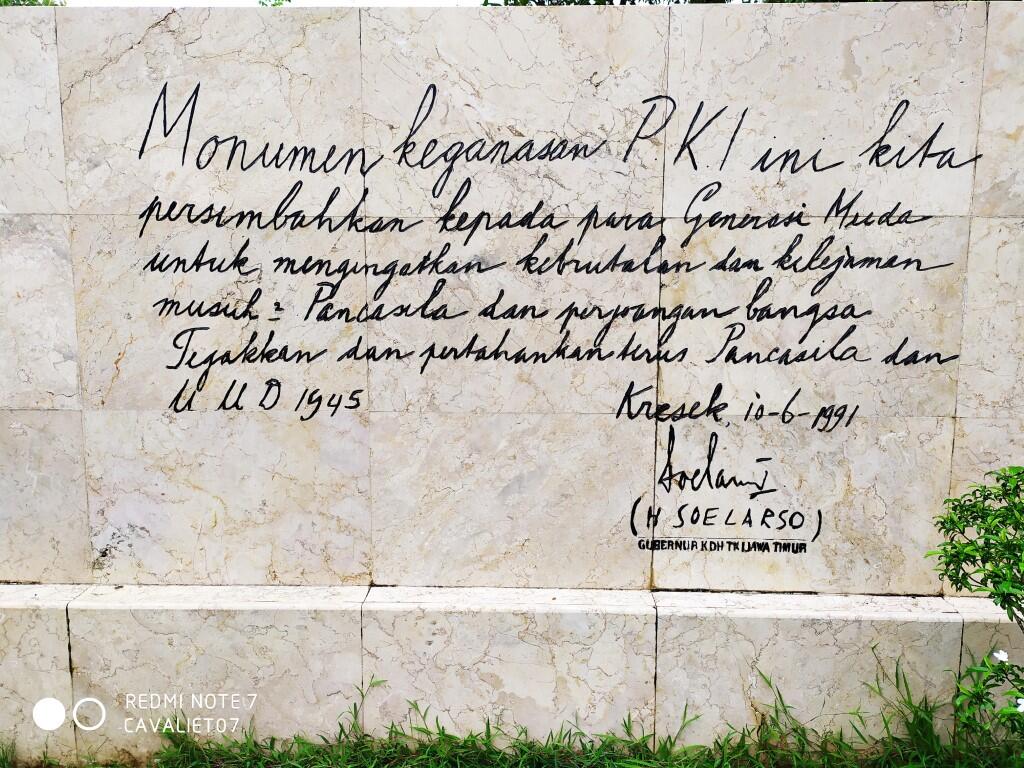 Monumen keganasan P.K.I ini kita
persembahkan kepada para Generasi Muda
untuk mengingatkan kebrutalan dan kekejaman
musuh = Pancasila dan perjoangan bangsa
Tegakkan dan pertahankan terus Pancasila dan
U U D 1945
Kresek, 10-6-1991
(H SOELARSO)
GUBERNUR KDH TK I JAWA TIMUR
REDMI NOTE 7
CAVALIET07